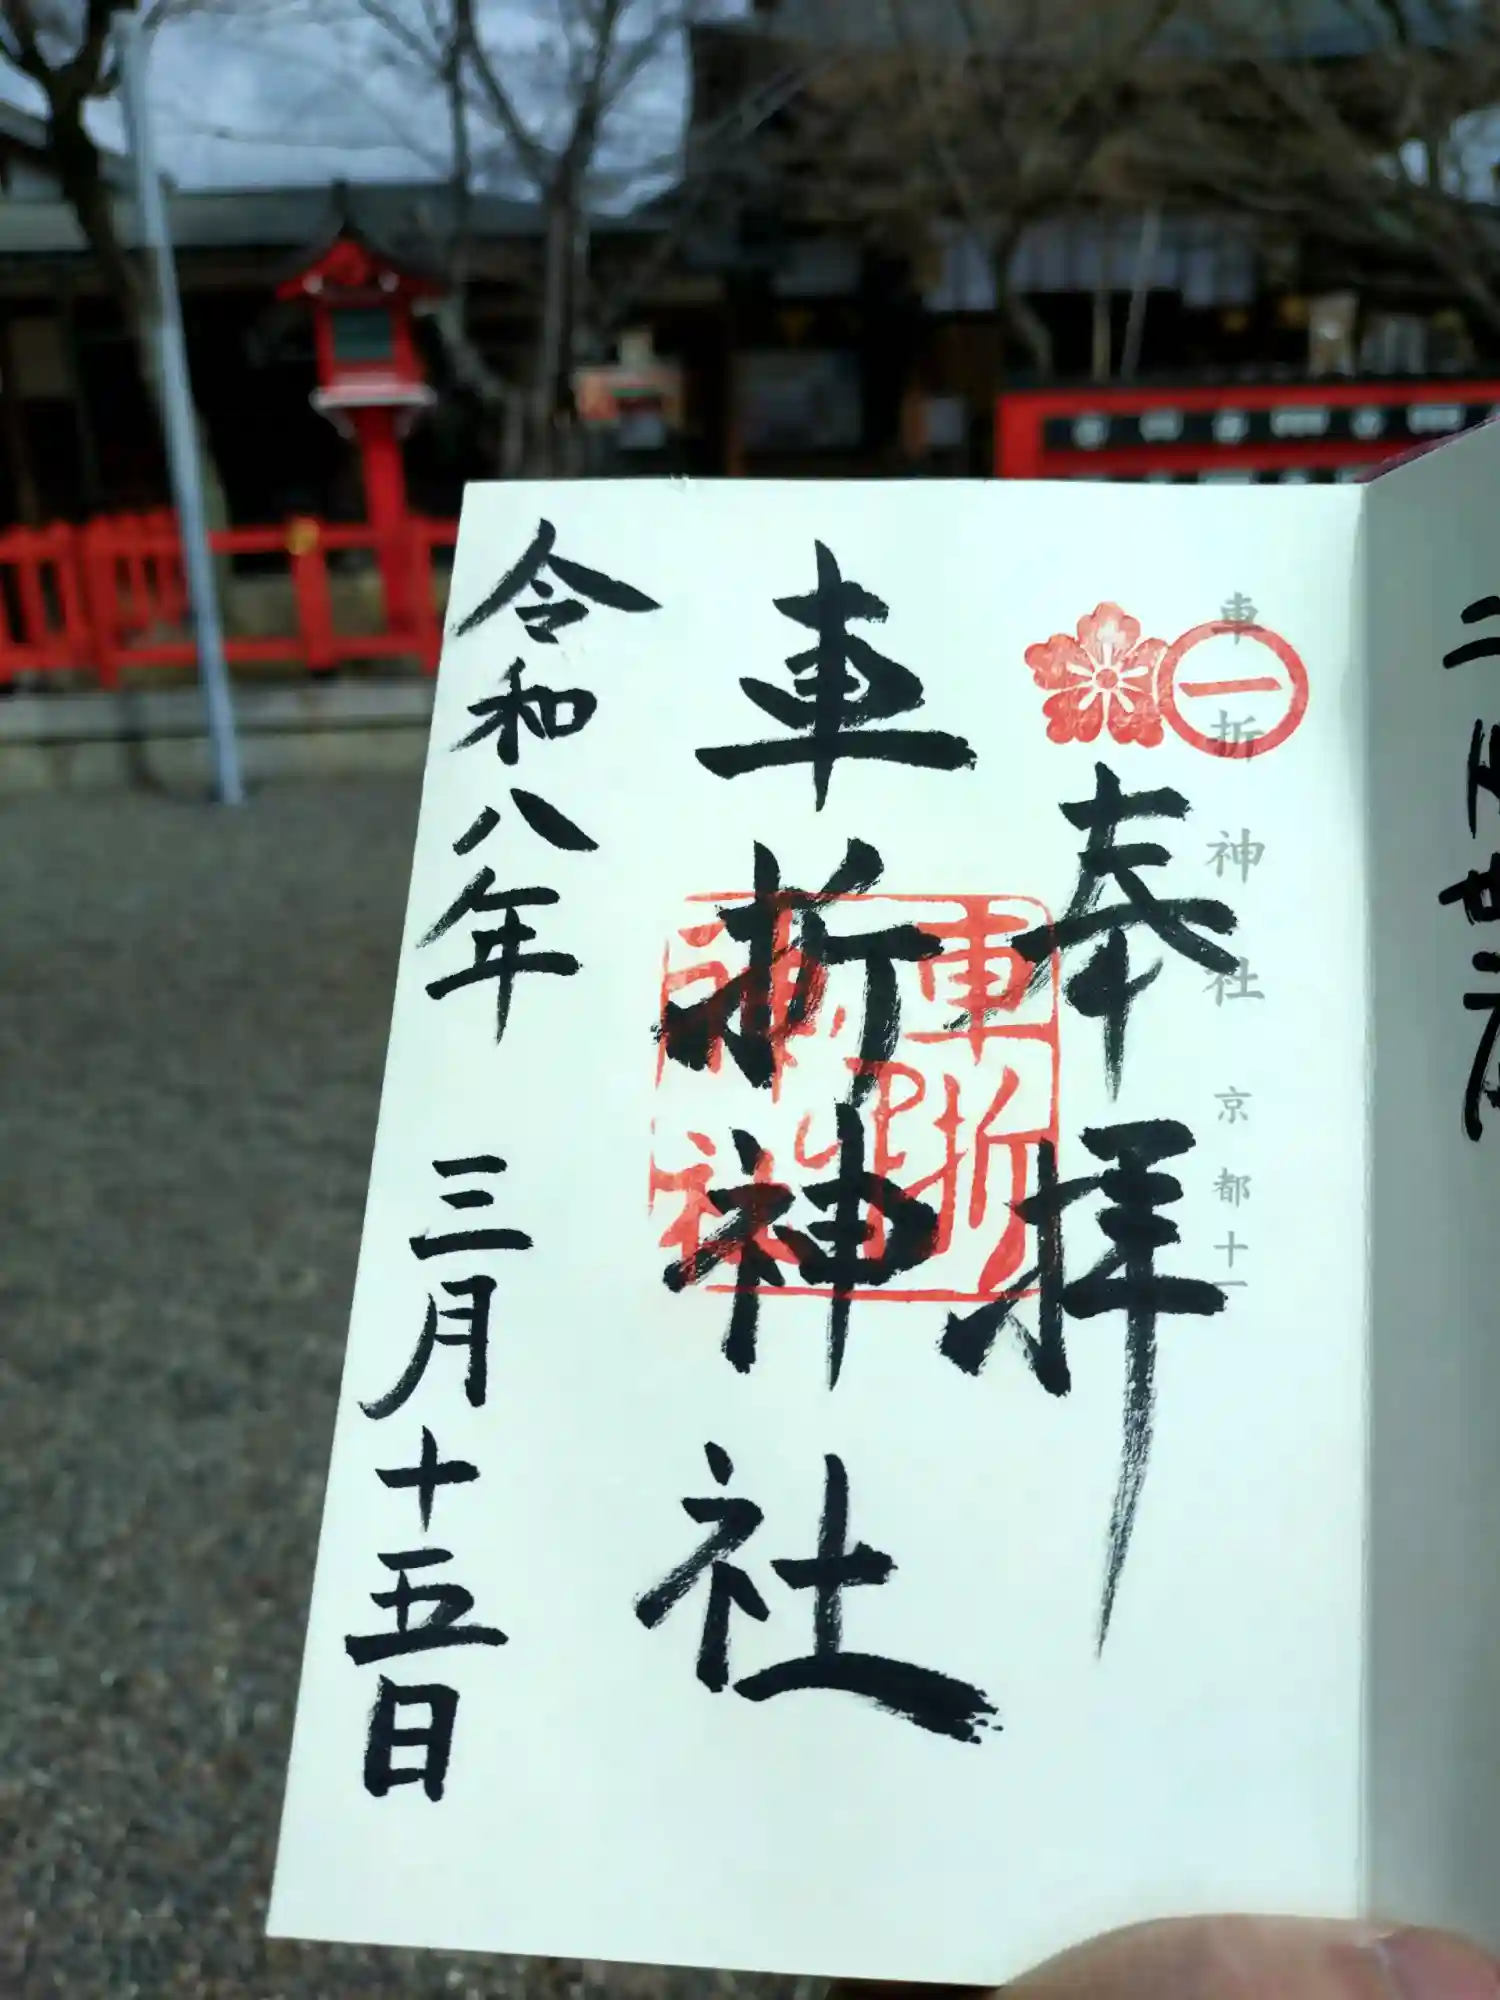 車折神社 京都十一
一
奉拝
車折神社
車折神社印
令和八年 三月十五日